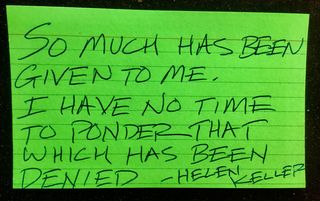 SO MUCH HAS BEEN
GIVEN TO ME.
I HAVE NO TIME
TO PONDER THAT
WHICH HAS BEEN
DENIED -HELEN KELLER